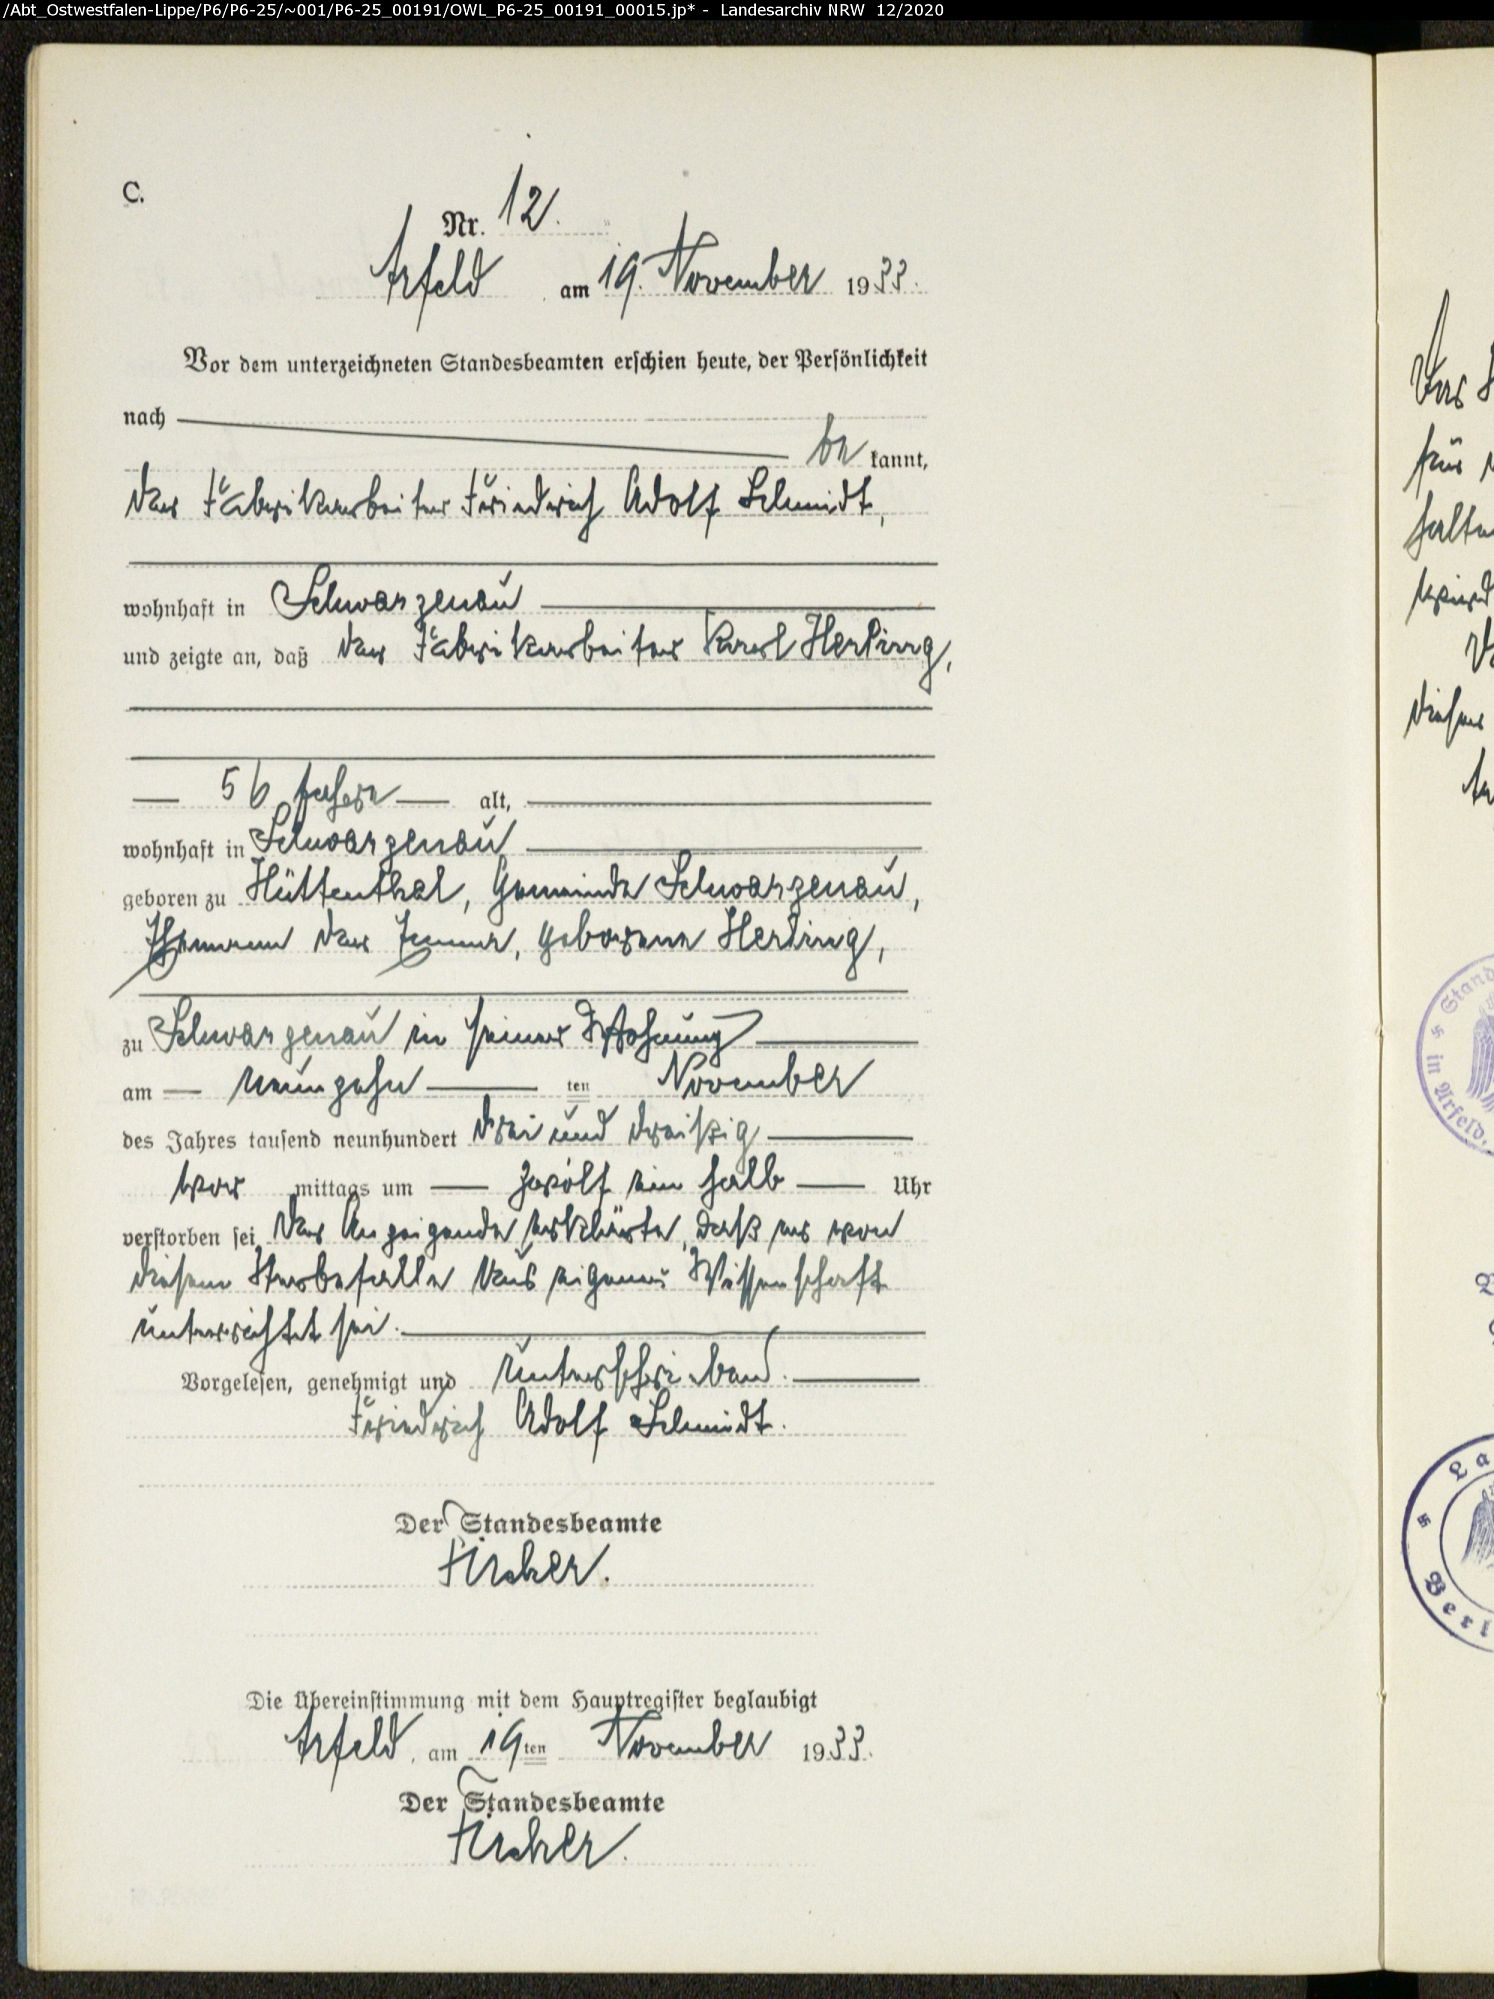 /Abt_Ostwestfalen-Lippe/P6/P6-25/~001/P6-25_00191/OWL_P6-25_00191_00015.jp* - Landesarchiv NRW 12/2020
C.
Nr. 12.
Arfeld am 19. November 1933.
Vor dem unterzeichneten Standesbeamten erschien heute, der Persönlichkeit
nach
be kannt,
der Fabrikarbeiter Friedrich Adolf Schmidt,
wohnhaft in Schwarzenau
und zeigte an, daß der Fabrikarbeiter Karl Herling,
56 Jahre alt,
wohnhaft in Schwarzenau
geboren zu Hüttenthal, Gemeinde Schwarzenau,
Ehemann der Emma, geborene Herling,
zu Schwarzenau in seiner Wohnung
am neunzehn ten November
des Jahres tausend neunhundert drei und dreißig
vor mittags um zwölf ein halb Uhr
verstorben sei. Der Anzeigende erklärte, daß er von
diesem Sterbefalle aus eigener Wissenschaft
unterrichtet sei.
Vorgelesen, genehmigt und unterschrieben.
Friedrich Adolf Schmidt.
Der Standesbeamte
Die Übereinstimmung mit dem Hauptregister beglaubigt
Arfeld, am 19ten November 1933.
Der Standesbeamte